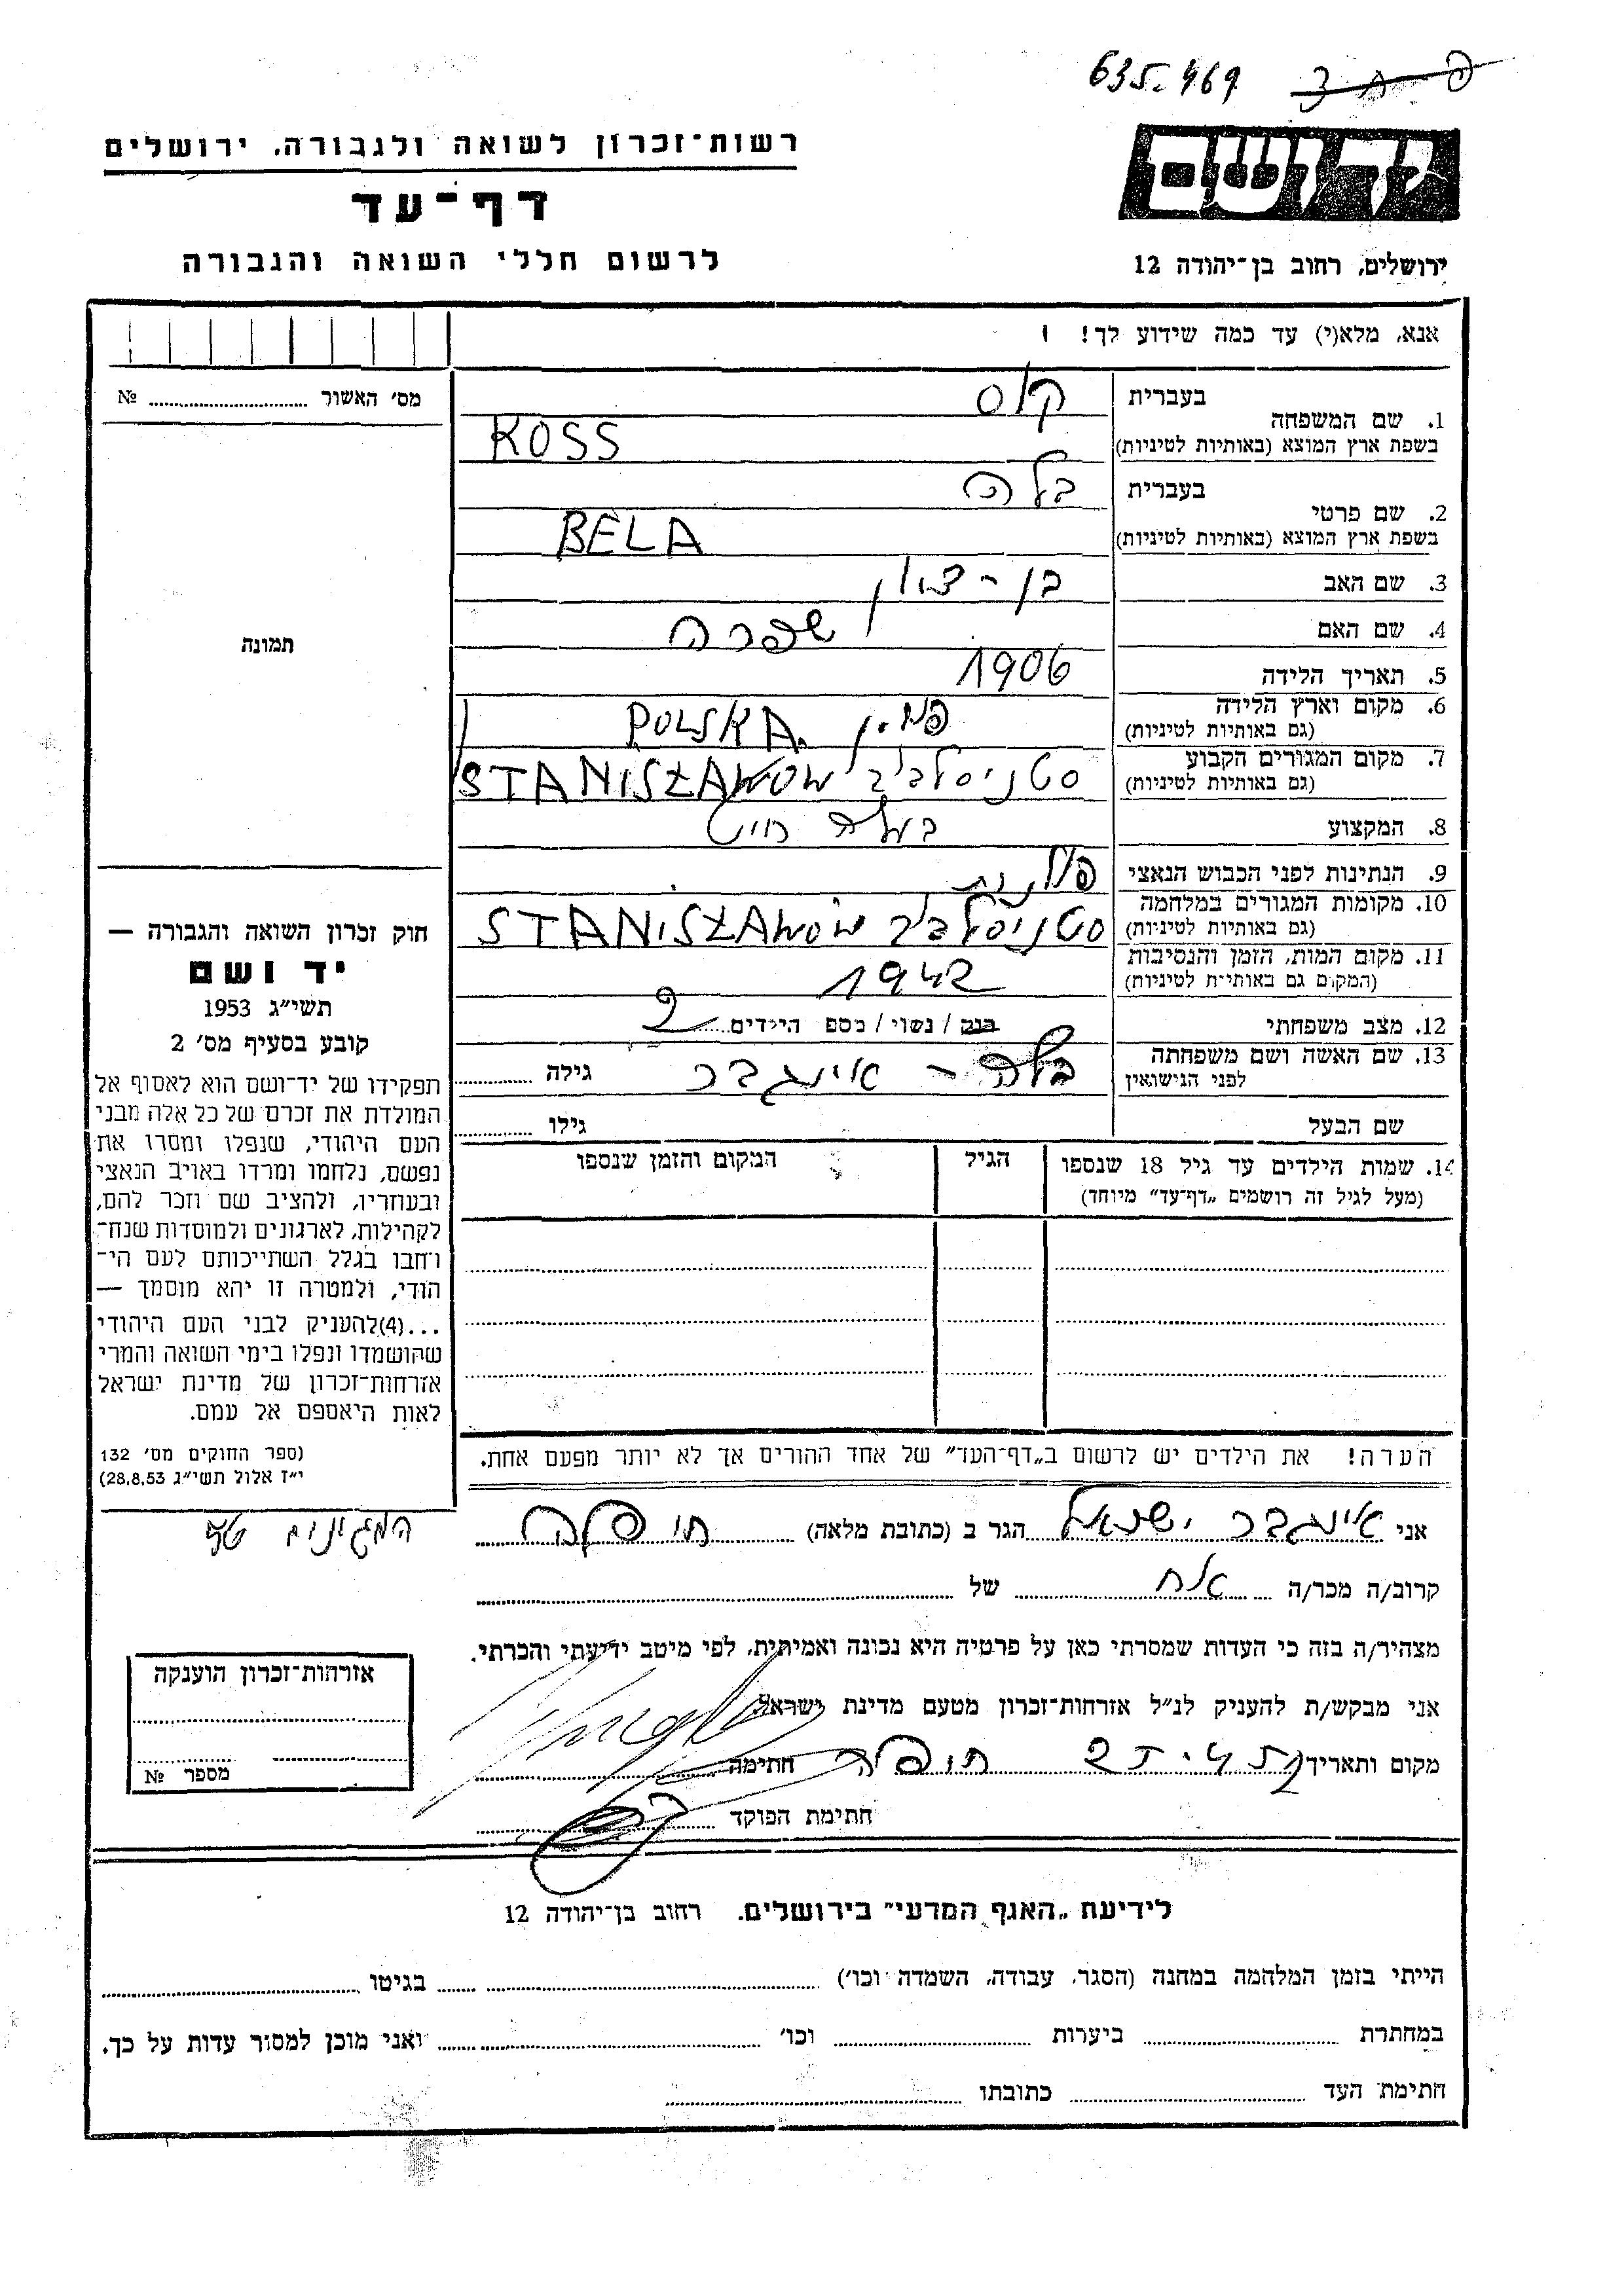 635.469
רשות־זכרון לשואה ולגבורה. ירושלים
יד ושם
דף־עד
לרשום חללי השואה והגבורה
ירושלים, רחוב בן־יהודה 12
אנא, מלא(י) עד כמה שידוע לך!
מס׳ האשור № 
בעברית קוס
1. שם המשפחה
בשפת ארץ המוצא (באותיות לטיניות) KOSS
בעברית בלה
2. שם פרטי
בשפת ארץ המוצא (באותיות לטיניות) BELA
3. שם האב בן-ציון
4. שם האם שפרה
תמונה
5. תאריך הלידה 1906
6. מקום וארץ הלידה פולין POLSKA
(גם באותיות לטיניות)
7. מקום המגורים הקבוע סטניסלבוב STANISŁAWOW
(גם באותיות לטיניות)
8. המקצוע בעלת בית
9. הנתינות לפני הכבוש הנאצי פולנית
10. מקומות המגורים במלחמה סטניסלבוב STANISŁAWÓW
(גם באותיות לטיניות)
11. מקום המות, הזמן והנסיבות 1942
(המקום גם באותיות לטיניות)
12. מצב משפחתי רווק / נשוי / מספ הילדים 2
13. שם האשה ושם משפחתה בלה - אינגבר גילה
לפני הנישואין
שם הבעל גילו
14. שמות הילדים עד גיל 18 שנספו הגיל המקום והזמן שנספו
(מעל לגיל זה רושמים „דף־עד” מיוחד)
חוק זכרון השואה והגבורה —
יד ושם
תשי״ג 1953
קובע בסעיף מס׳ 2
תפקידו של יד־ושם הוא לאסוף אל
המולדת את זכרם של כל אלה מבני
העם היהודי, שנפלו ומסרו את
נפשם, נלחמו ומרדו באויב הנאצי
ובעוזריו, ולהציב שם וזכר להם,
לקהילות, לארגונים ולמוסדות שנח־
רחבו בגלל השתייכותם לעם הי־
הודי, ולמטרה זו יהא מוסמך —
...(4)להעניק לבני העם היהודי
שהושמדו ונפלו בימי השואה והמרי
אזרחות־זכרון של מדינת ישראל
לאות היאספם אל עמם.
(ספר החוקים מס׳ 132
י״ז אלול תשי״ג 28.8.53)
הערה! את הילדים יש לרשום ב„דף־העד” של אחד ההורים אך לא יותר מפעם אחת.
אני אינגבר ישראל הגר ב (כתובת מלאה) חיפה
קרוב/ה מכר/ה אח של
מצהיר/ה בזה כי העדות שמסרתי כאן על פרטיה היא נכונה ואמיתית, לפי מיטב ידיעתי והכרתי.
אני מבקש/ת להעניק לנ״ל אזרחות־זכרון מטעם מדינת ישראל
מקום ותאריך חיפה חתימה
חתימת הפוקד
אזרחות־זכרון הוענקה
מספר №
לידיעת „האגף המדעי” בירושלים. רחוב בן־יהודה 12
הייתי בזמן המלחמה במחנה (הסגר, עבודה, השמדה וכו׳) בגיטו
במחתרת ביערות וכו׳ ואני מוכן למסור עדות על כך.
חתימת העד כתובתו